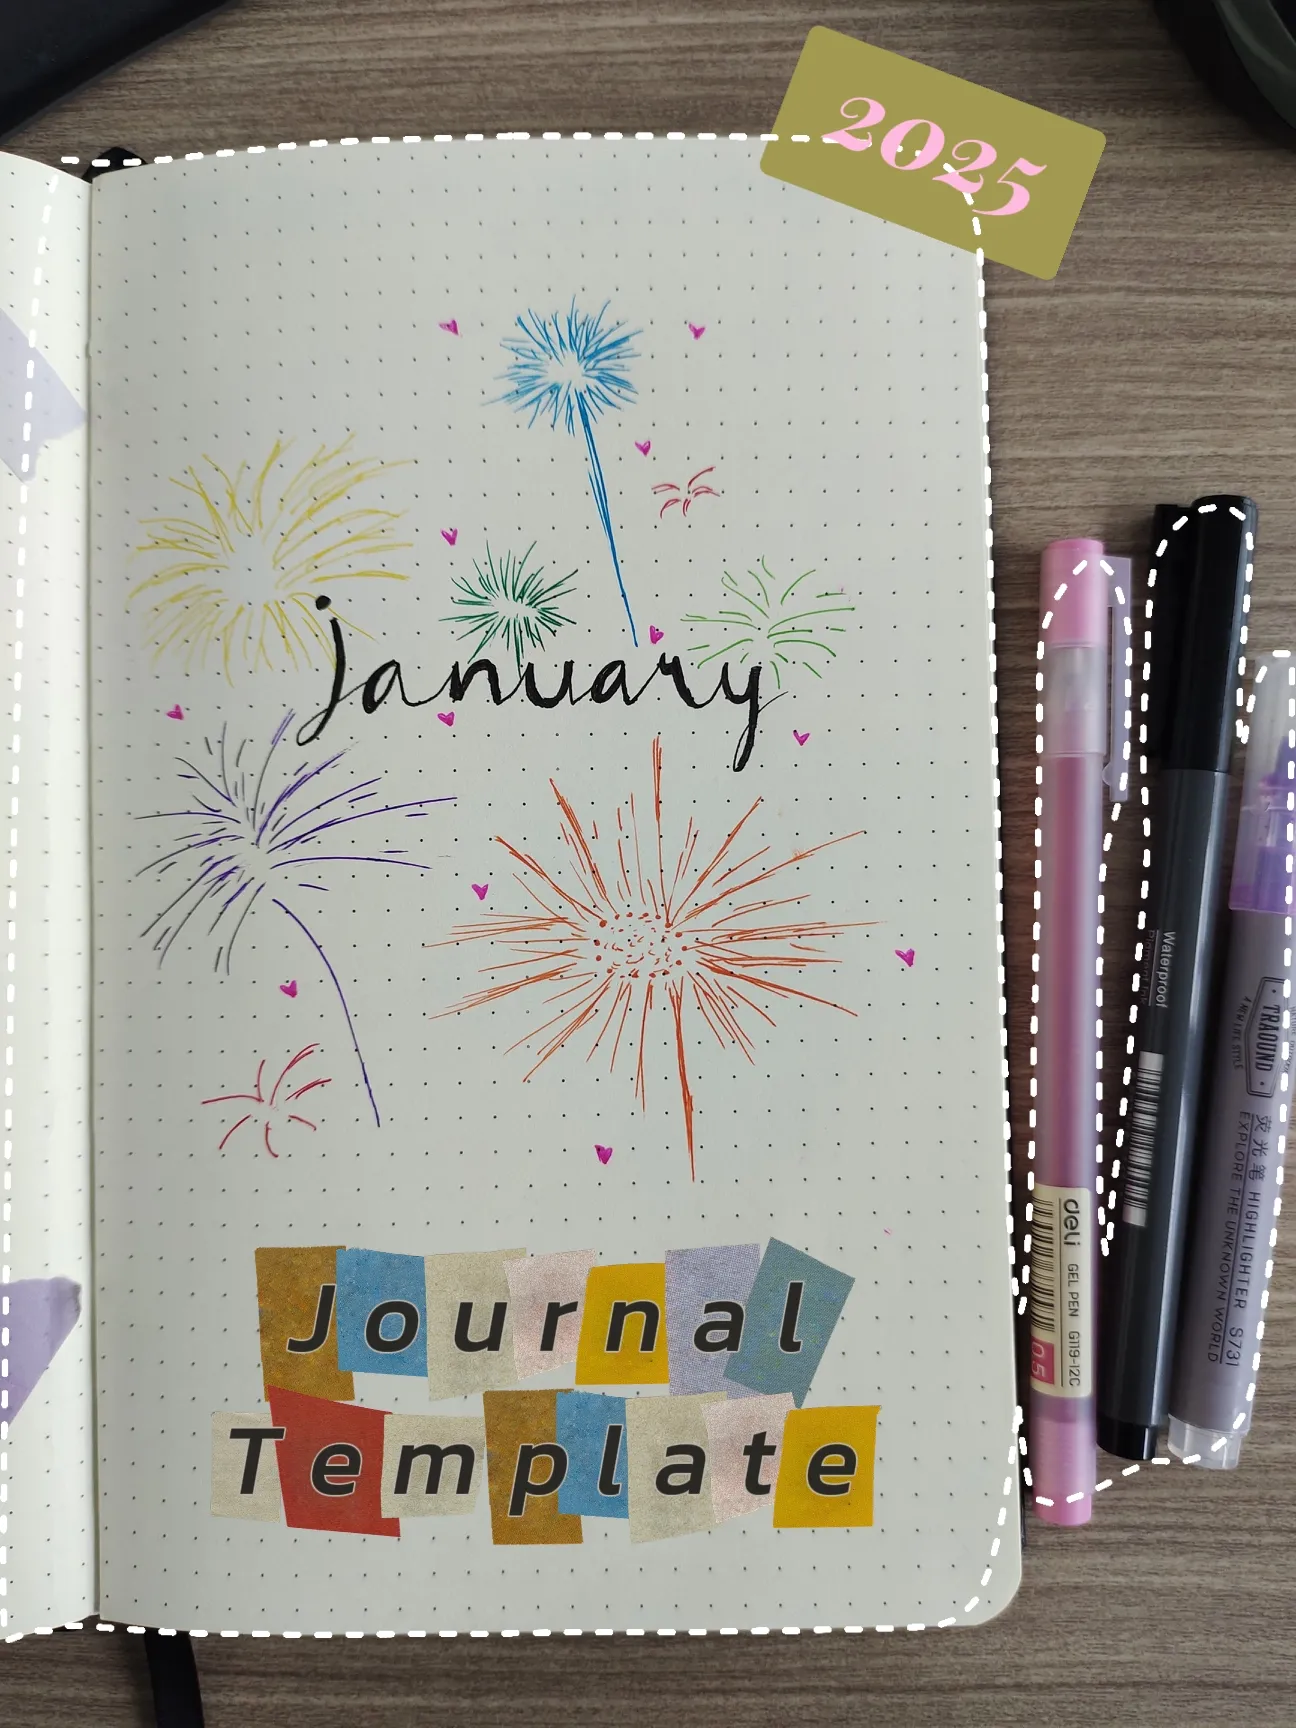 2025
january
Journal
Template
Waterproof
Pigment Ink
deli GEL PEN G119-12C
0.5
TRAOUND
荧光笔 HIGHLIGHTER S731
EXPLORE THE UNKNOWN WORLD